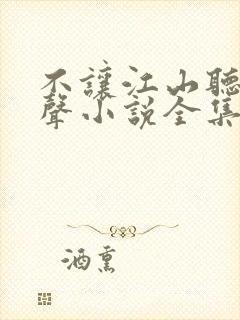 不讓江山聽
聲小說全集
酒熏